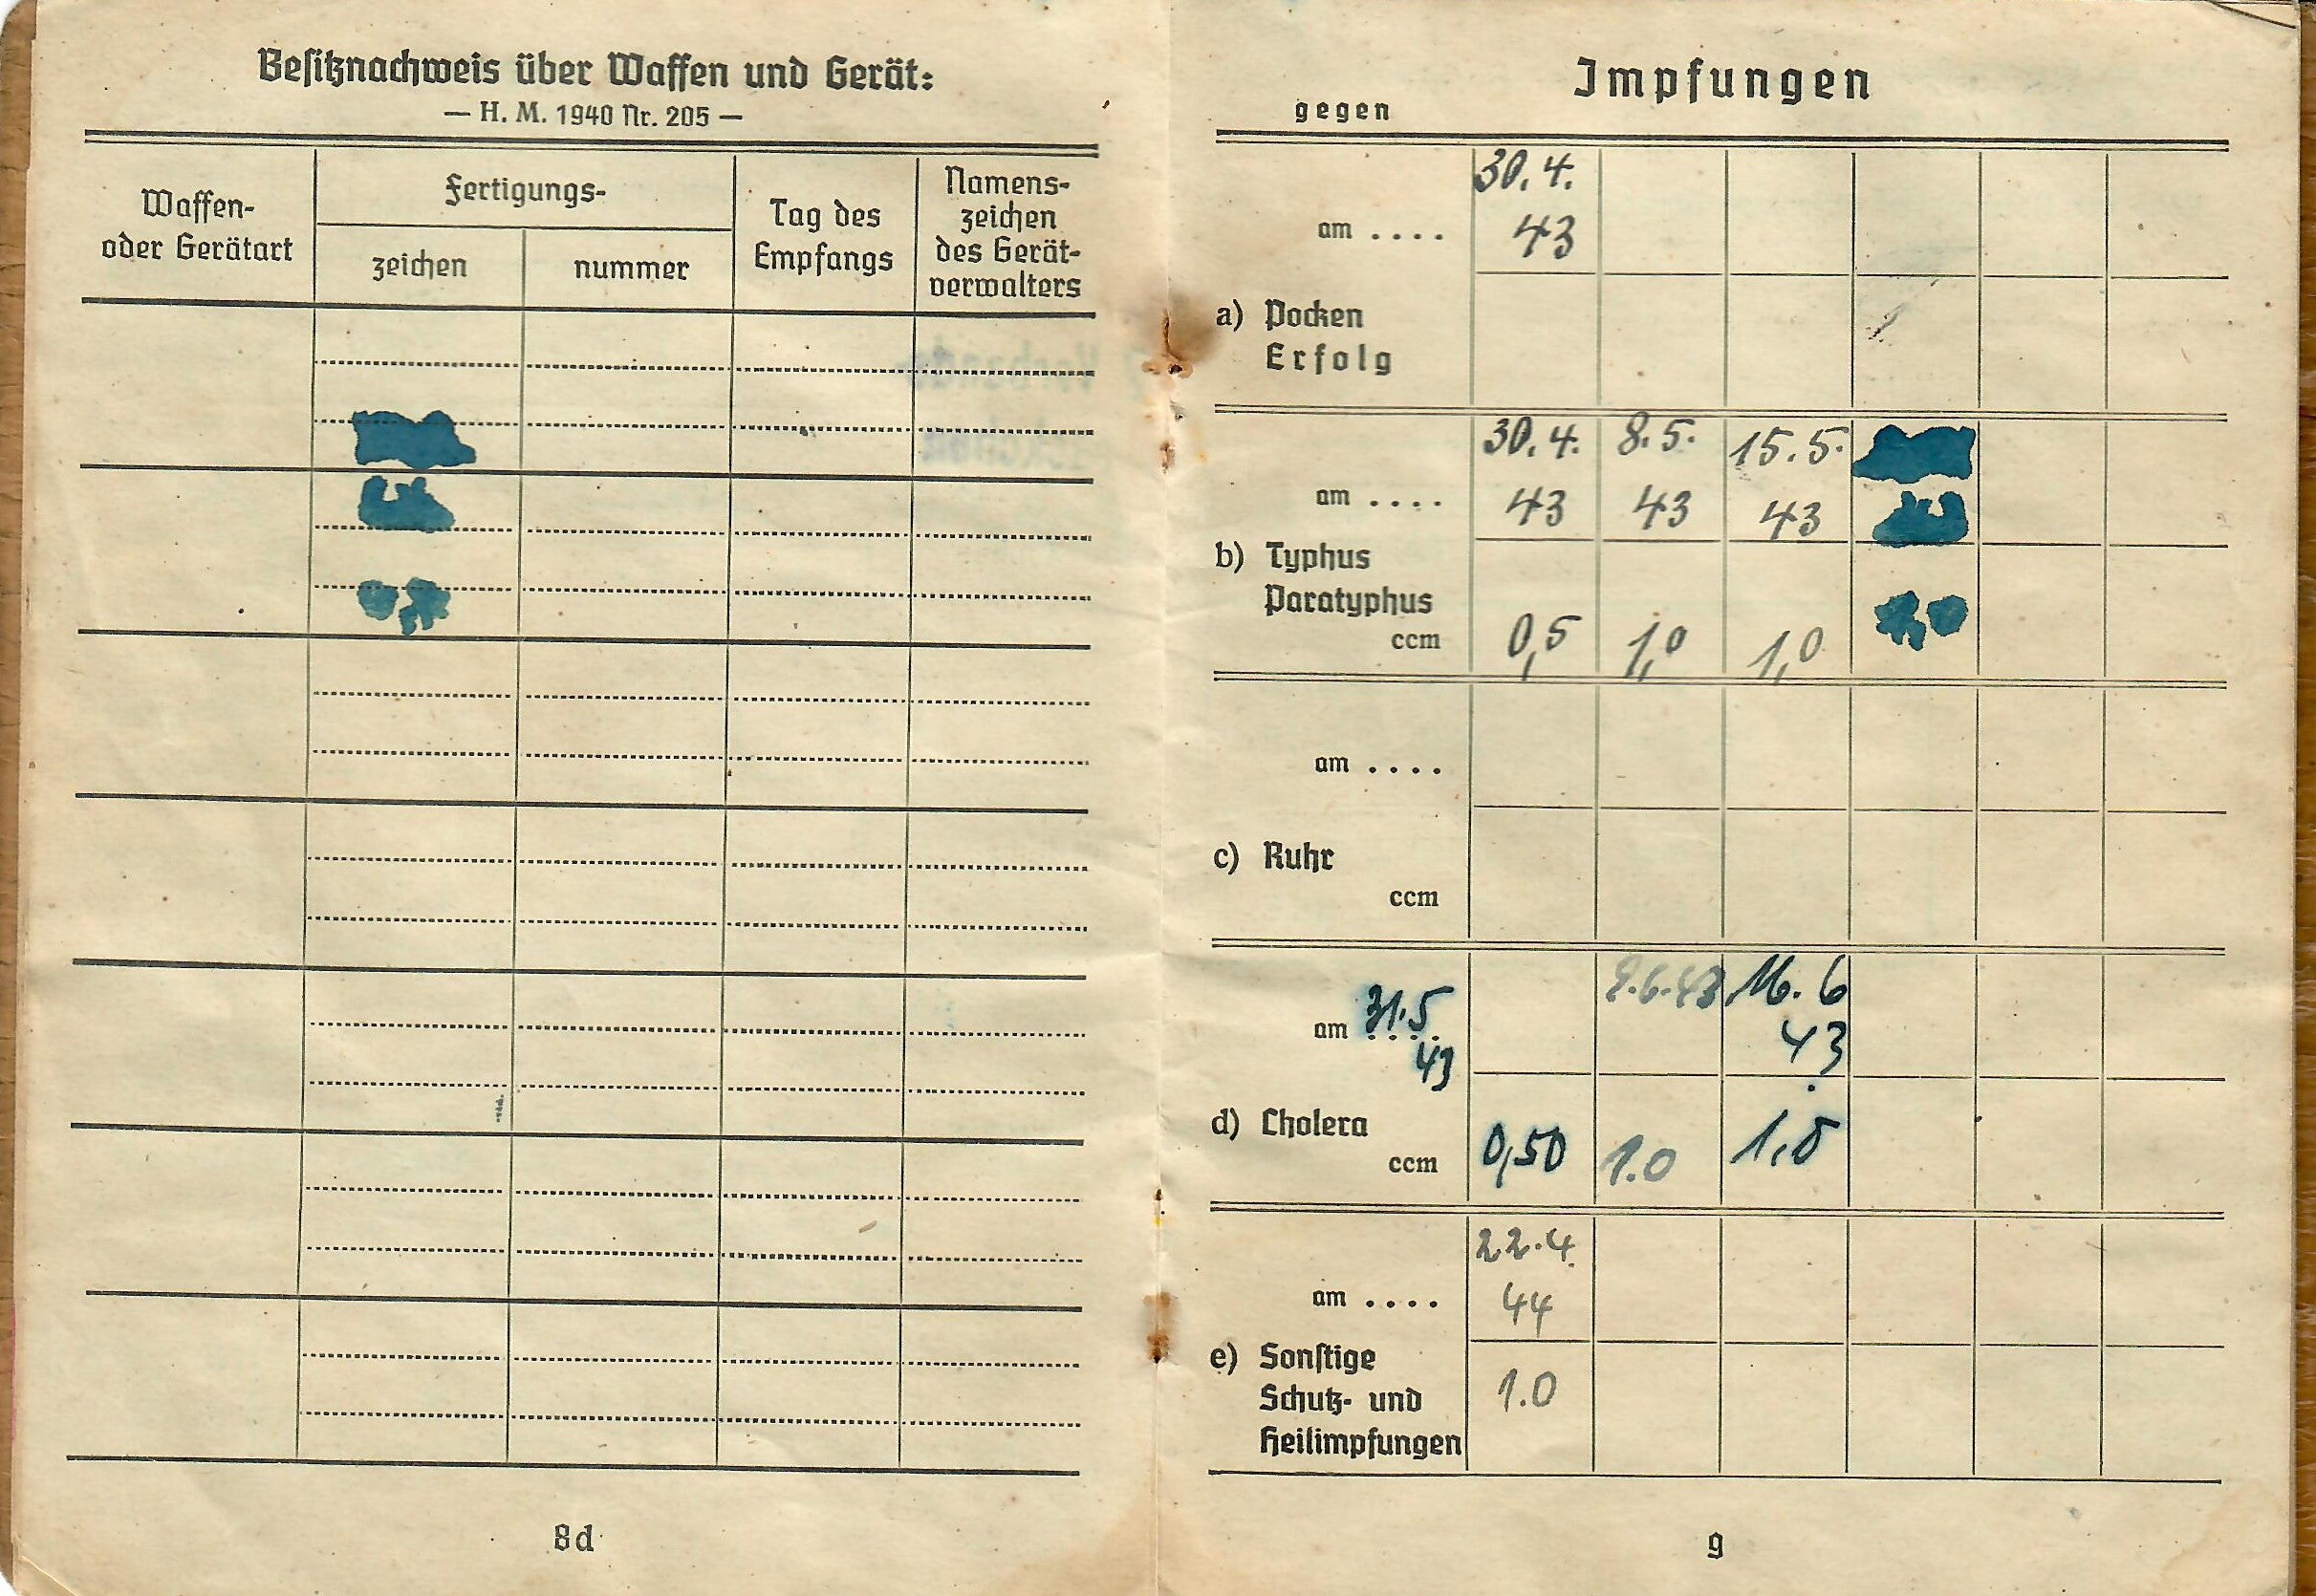 Besitznachweis über Waffen und Gerät:
— H. M. 1940 Nr. 205 —
Waffen-
oder Gerätart
Fertigungs-
zeichen
nummer
Tag des
Empfangs
Namens-
zeichen
des Gerät-
verwalters
8d
Impfungen
gegen
30. 4.
am .... 43
a) Pocken
Erfolg
30. 4. 8. 5. 15. 5.
am .... 43 43 43
b) Typhus
Paratyphus
ccm 0,5 1,0 1,0
am ....
c) Ruhr
ccm
.6.43 16. 6
am .... 31.5 43
43
d) Cholera
ccm 0,50 1.0 1,0
22.4.
am .... 44
e) Sonstige
Schutz- und 1.0
Heilimpfungen
9